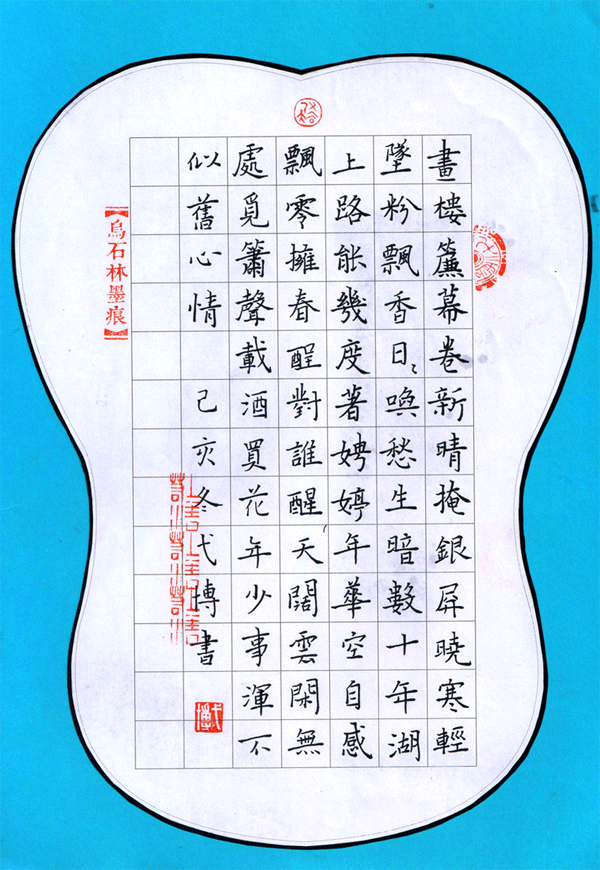 畫樓簾幕卷新晴掩銀屏曉寒輕
墜粉飄香日〻喚愁生暗數十年湖
上路能幾度著娉婷年華空自感
飄零擁春酲對誰醒天闊雲閑無
處覓簫聲載酒買花年少事渾不
似舊心情 己亥冬弋博書
【烏石林墨痕】